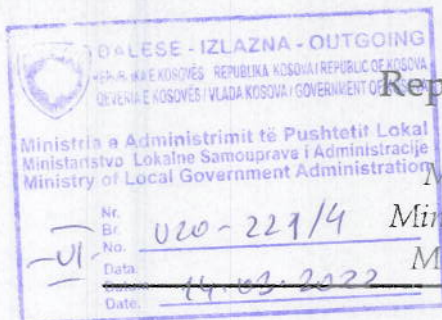 DALESE - IZLAZNA - OUTGOING
REPUBLIKA E KOSOVËS REPUBLIKA KOSOVA / REPUBLIC OF KOSOVA
QEVERIA E KOSOVËS / VLADA KOSOVA / GOVERNMENT OF
Rep
Ministria e Administrimit të Pushtetit Lokal
Ministarstvo Lokalne Samouprave i Administracije
Ministry of Local Government Administration
M
Nr.
Br.
No. 020-221/4
Min
-01-
Data:
M
14.03.2022
Date.